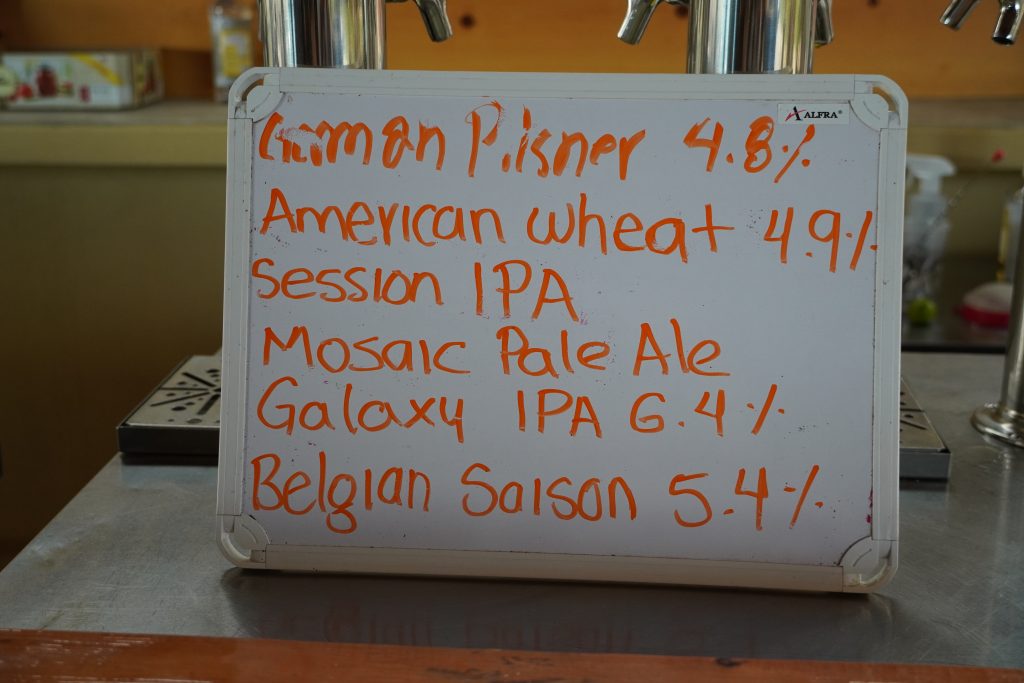 ALFRA
German Pilsner 4.8%
American wheat 4.9%
Session IPA
Mosaic Pale Ale
Galaxy IPA 6.4%
Belgian Saison 5.4%